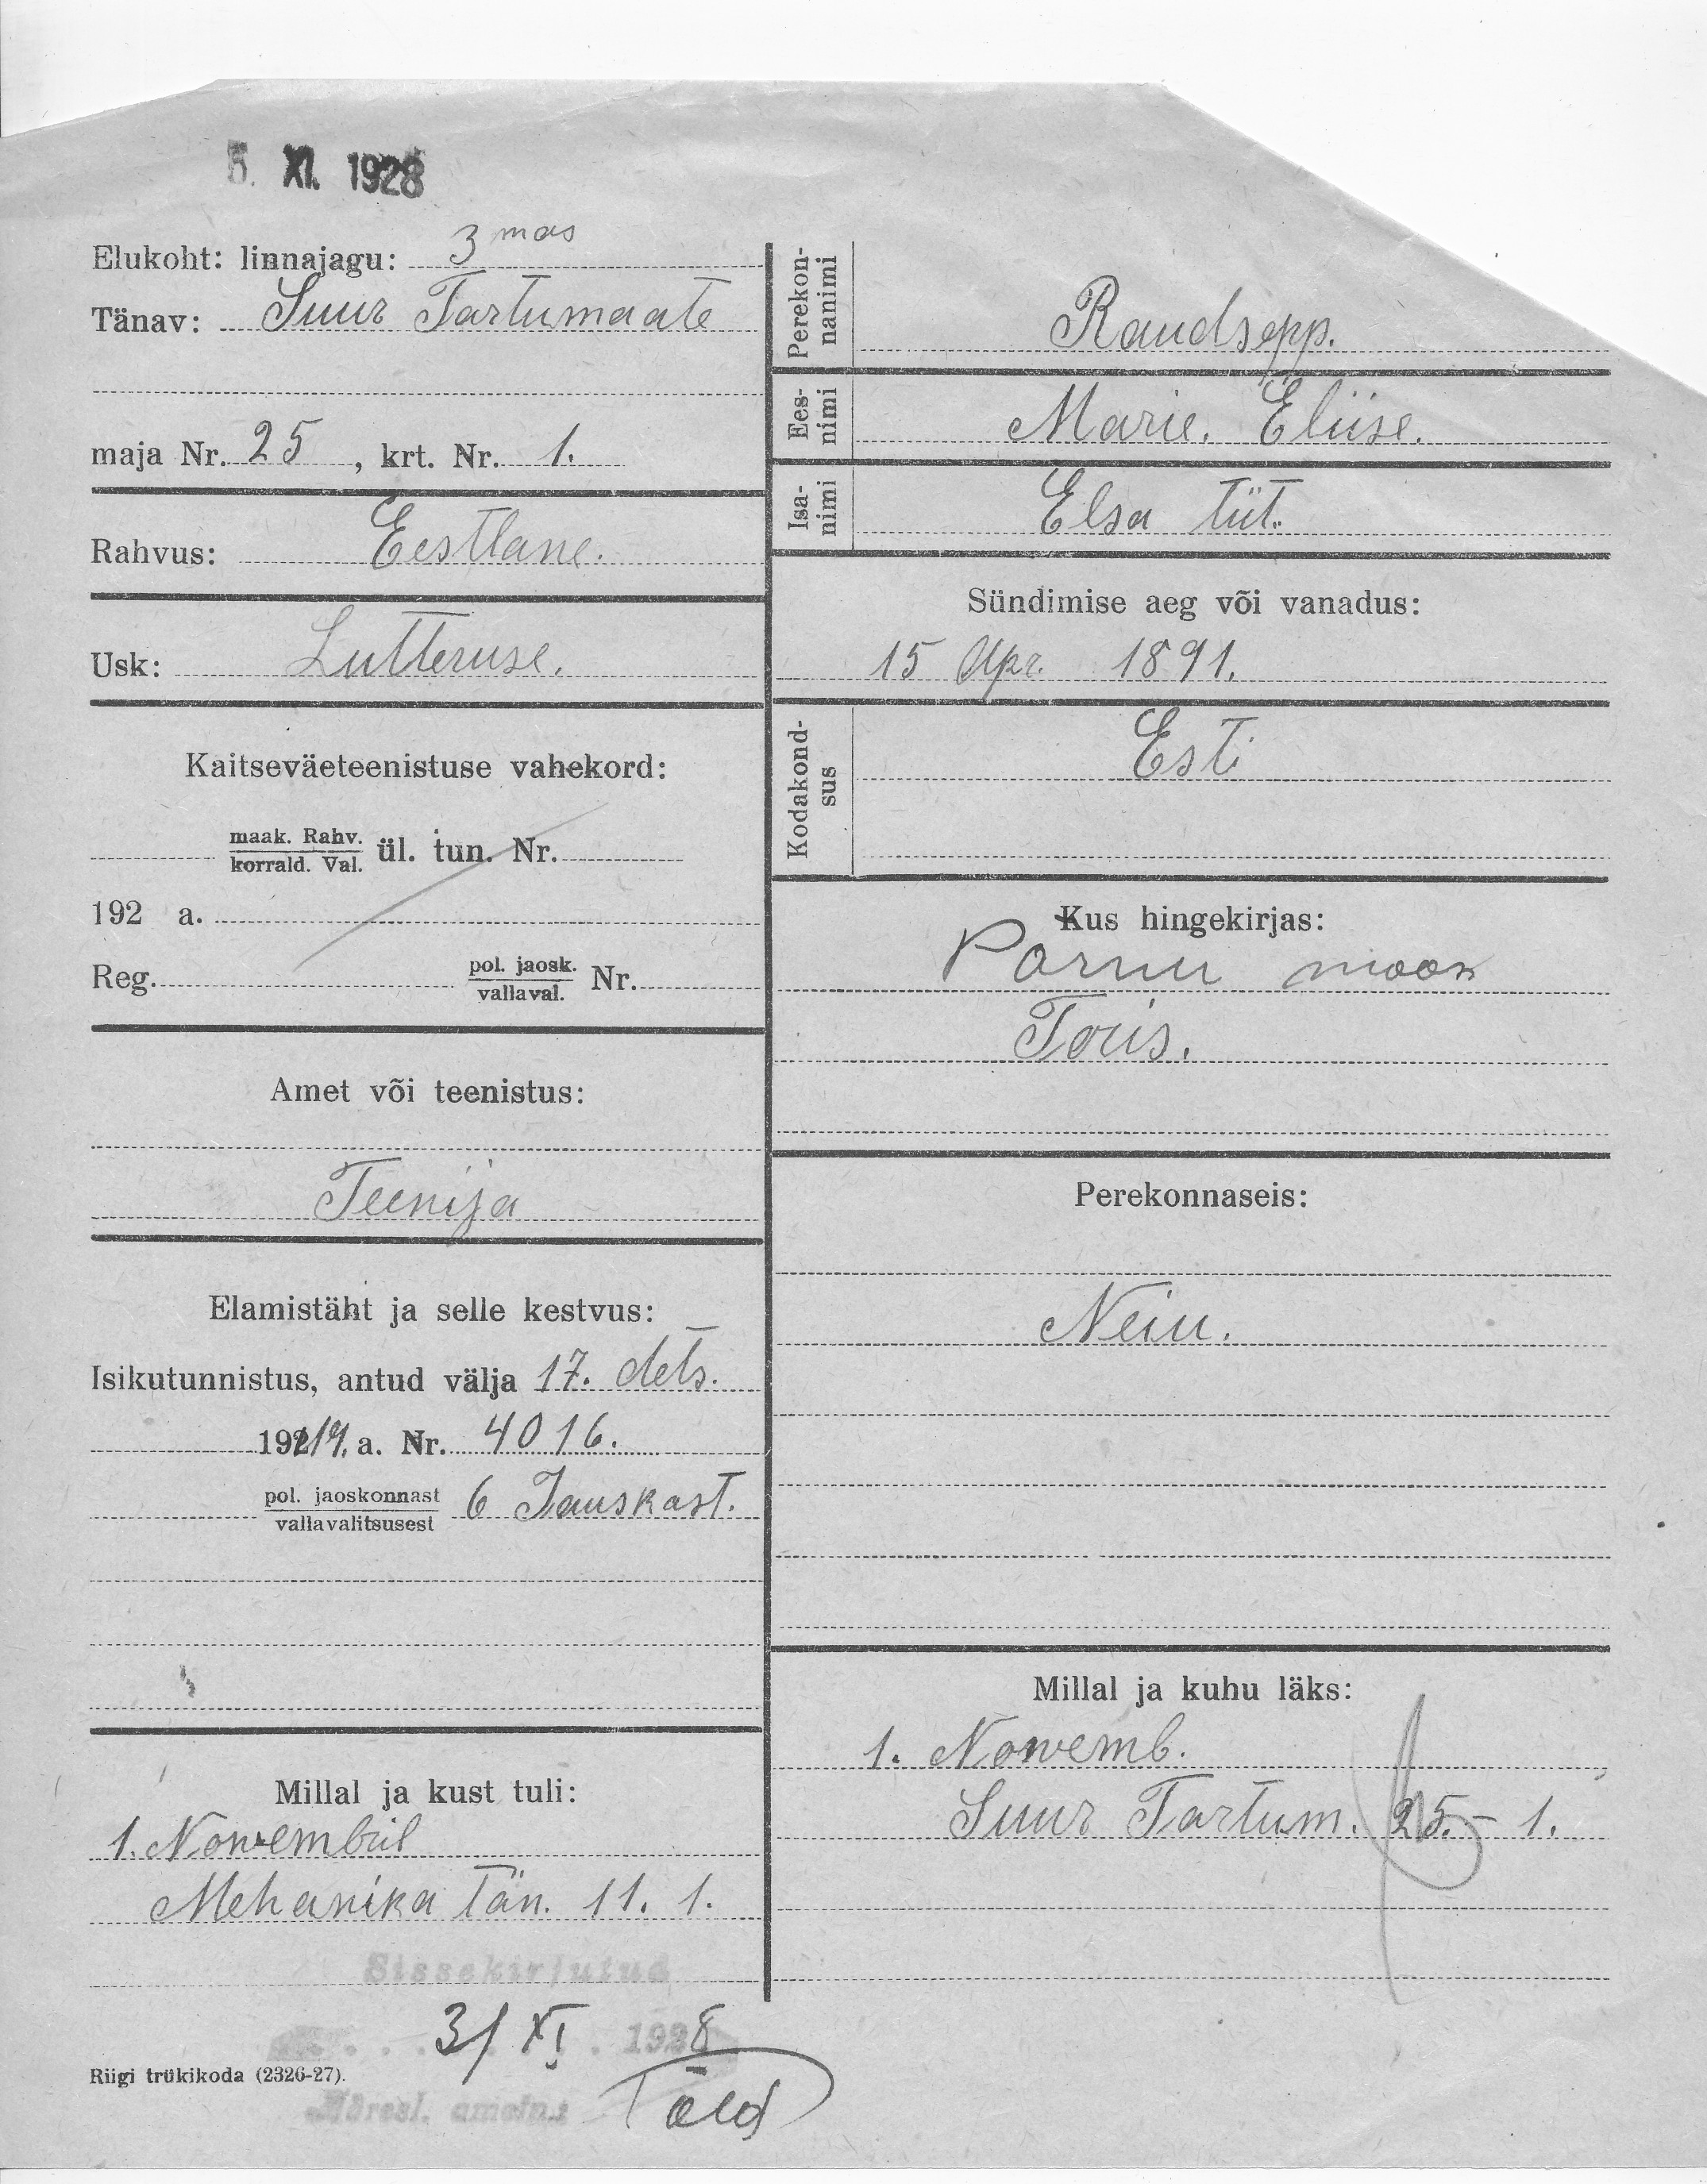 5. XI. 1928
Elukoht: linnajagu: 3 mas
Tänav: Suur Tartumaate
maja Nr. 25, krt. Nr. 1.
Rahvus: Eestlane.
Usk: Lutteruse.
Kaitseväeteenistuse vahekord:
maak. Rahv.
korrald. Val. ül. tun. Nr.
192 a.
Reg. pol. jaosk.
vallaval. Nr.
Amet või teenistus:
Teenija
Elamistäht ja selle kestvus:
Isikutunnistus, antud välja 17. dets.
1919. a. Nr. 4016.
pol. jaoskonnast
vallavalitsusest 6 Jauskast.
Millal ja kust tuli:
1. Nowembril
Mehanika Tän. 11. 1.
Sissekirjutud
3/XI. 1928
Riigi trükikoda (2326-27).
Perekon-
nanimi
Raudsepp.
Ees-
nimi
Marie. Eliise.
Isa-
nimi
Elsa tüt.
Sündimise aeg või vanadus:
15 Apr. 1891.
Kodakond-
sus
Esti
Kus hingekirjas:
Parnu maax
Toris.
Perekonnaseis:
Neiu.
Millal ja kuhu läks:
1. Nowemb.
Suur Tartum. 25. – 1.